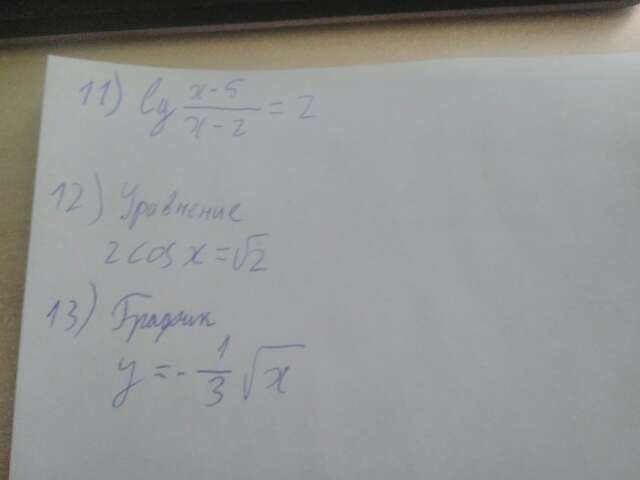 11) lg (x-5)/(x-2) = 2
12) Уравнение
2cos x = √2
13) График
y = - 1/3 √x